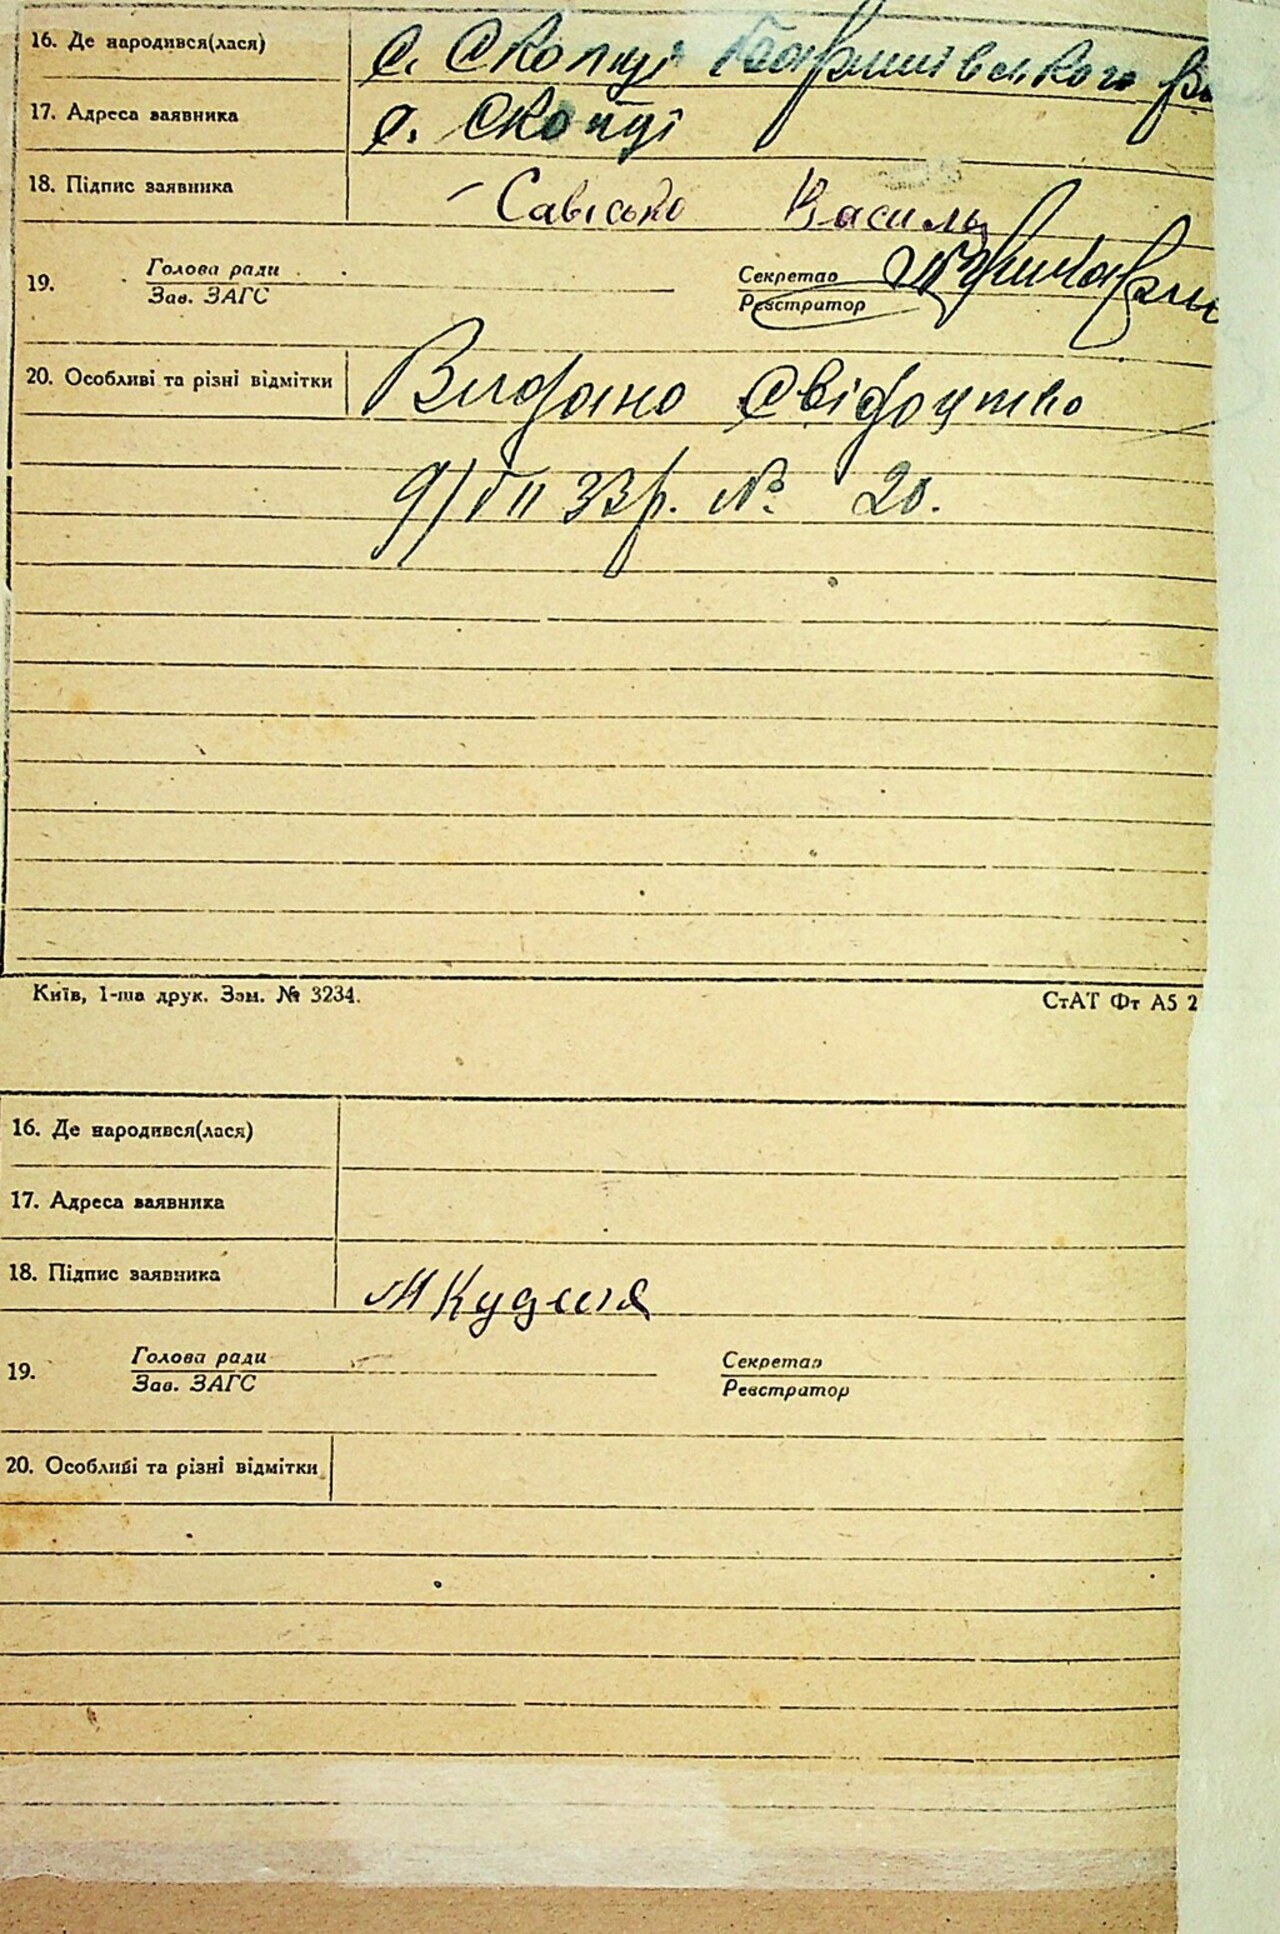 16. Де народився(лася) с. Скопці Баришівського
17. Адреса заявника с. Скопці
18. Підпис заявника Савісько Василь
19. Голова ради Секретар
Зав. ЗАГС Реєстратор
20. Особливі та різні відмітки Видано Свідоцтво
9/VII 33 р. № 20.
Київ, 1-ша друк. Зам. № 3234. СтАТ Фт А5 2
16. Де народився(лася)
17. Адреса заявника
18. Підпис заявника М Кудля
19. Голова ради Секретар
Зав. ЗАГС Реєстратор
20. Особливі та різні відмітки